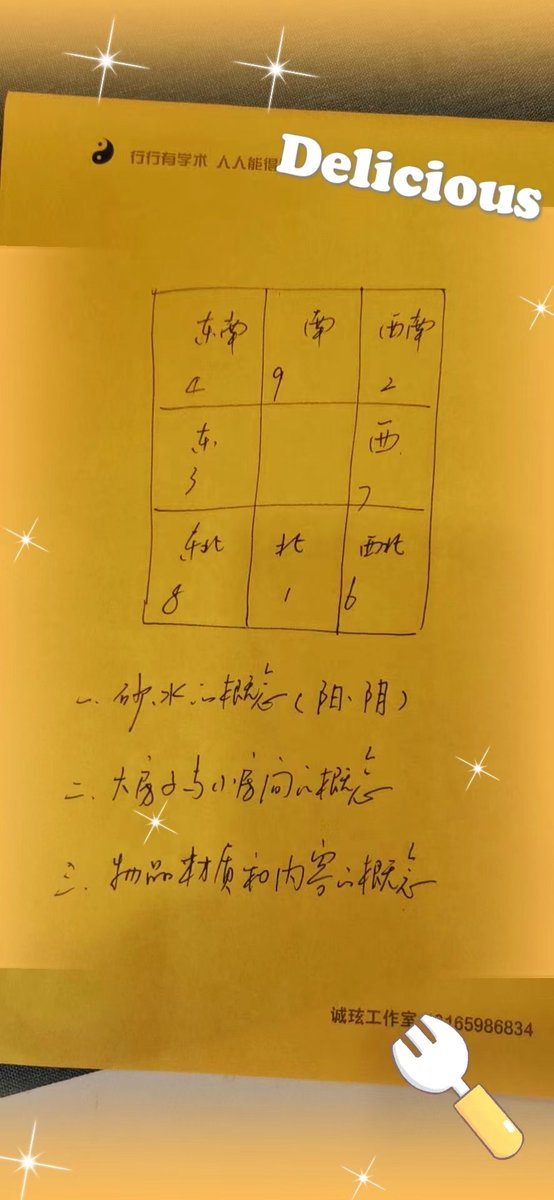 行行有学术 人人能得
Delicious
东南 南 西南
4 9 2
东 西
3 7
东北 北 西北
8 1 6
一、砂、水的概念(阳、阴)
二、大房子与小房间的概念
三、物品材质和内容的概念
诚玹工作室 165986834